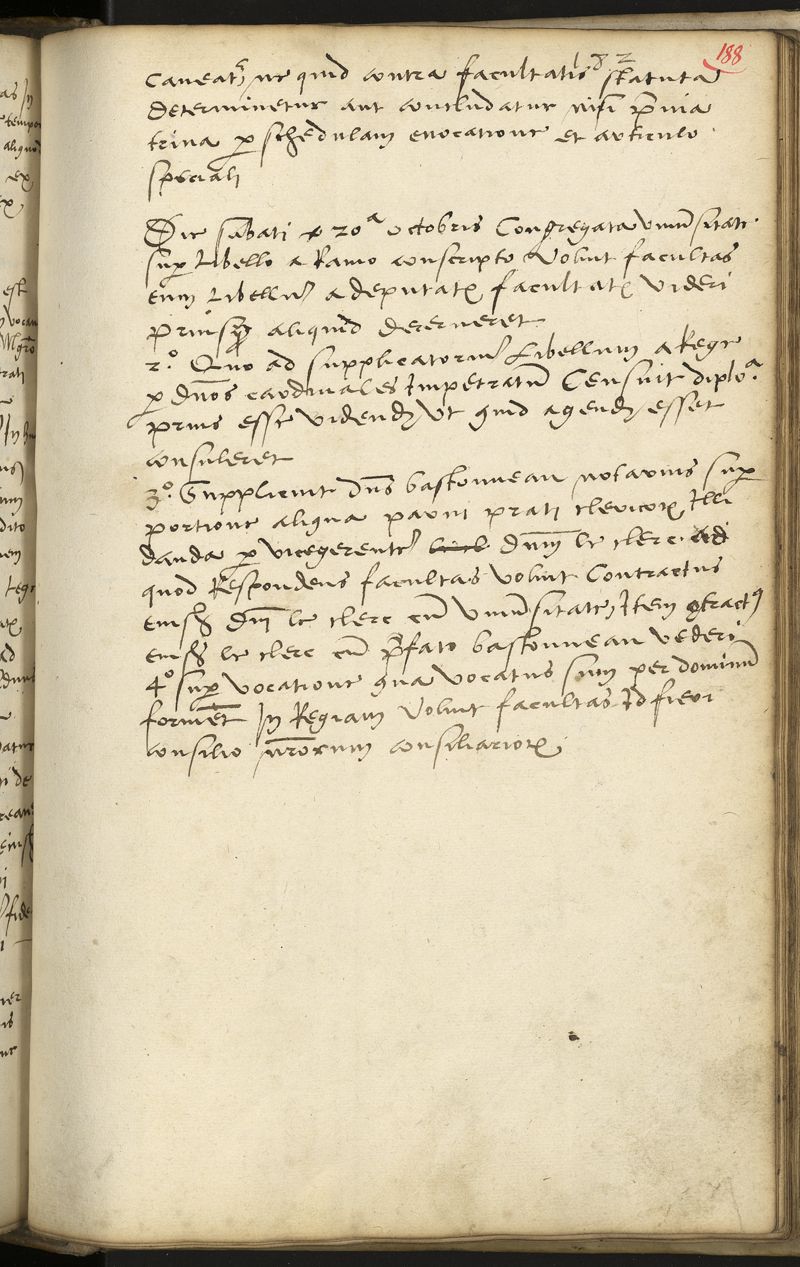 188
182
caveat^r ne quid contra facultatis statuta
determinetur aut concludatur nisi p̄via
trina p schedulam evocatione et articulo
speciali
Die sabati 20ᵃ octobris Congregata Univ̄sitate
sup Libello a Ramo conscripto Voluit facultas
eum Libellū a deputatis facultatis Videri
priusq̄ aliquid decerneret
2º. Quo ad supplicatoriū Libellum a Rege
p dn̄os cardinales Impetratū Censuit diplᵒᵃ
prius esse videndū Ut quid agendū esset
consuleret
3º. Supplicuit dn̄s bastonneau notarius sup
portione aliqua parvi prati clericorū Illi
danda p vicegerentē dn̄m le clerc ad
quod Respondens facultas voluit Contractus
eiusd̄ dn̄i le clerc cū Univ̄sitate, Item ꝯtractꝰ
eiusd̄ le clerc cū p̄fato bastonneau vederi
4º sup vocatione qua vocatus sum per dominū
forment In Regiam Voluit facultas Id fieri
consilio nr̄orum consiliariorū